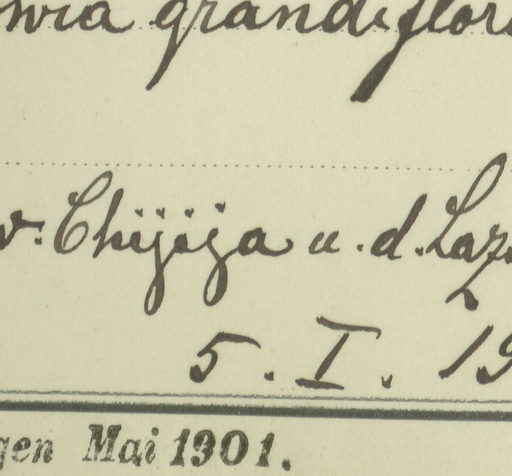 wia grandiflor
v. Chijija u. d. Laz
5. I. 19
gen Mai 1901.